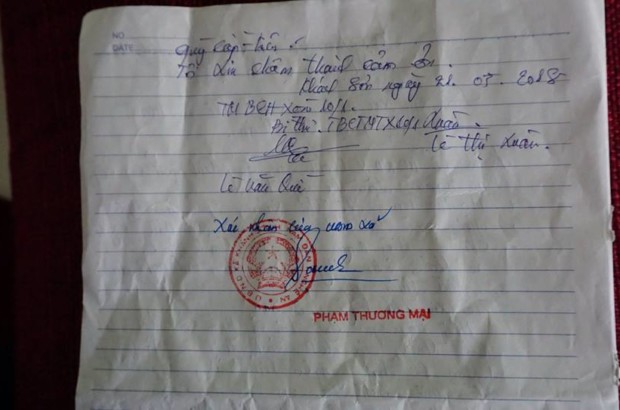 NO
DATE
quý cấp trên.
Tôi xin chân thành cảm ơn.
Khánh Sơn ngày 21. 05. 2018
TM BCH Xóm 10/1.
Bí thư. TBCTMTX10/1 Xuân.
Lê Thị Xuân.
Lê Văn Quế
Xác nhận của
PHẠM THƯƠNG MẠI